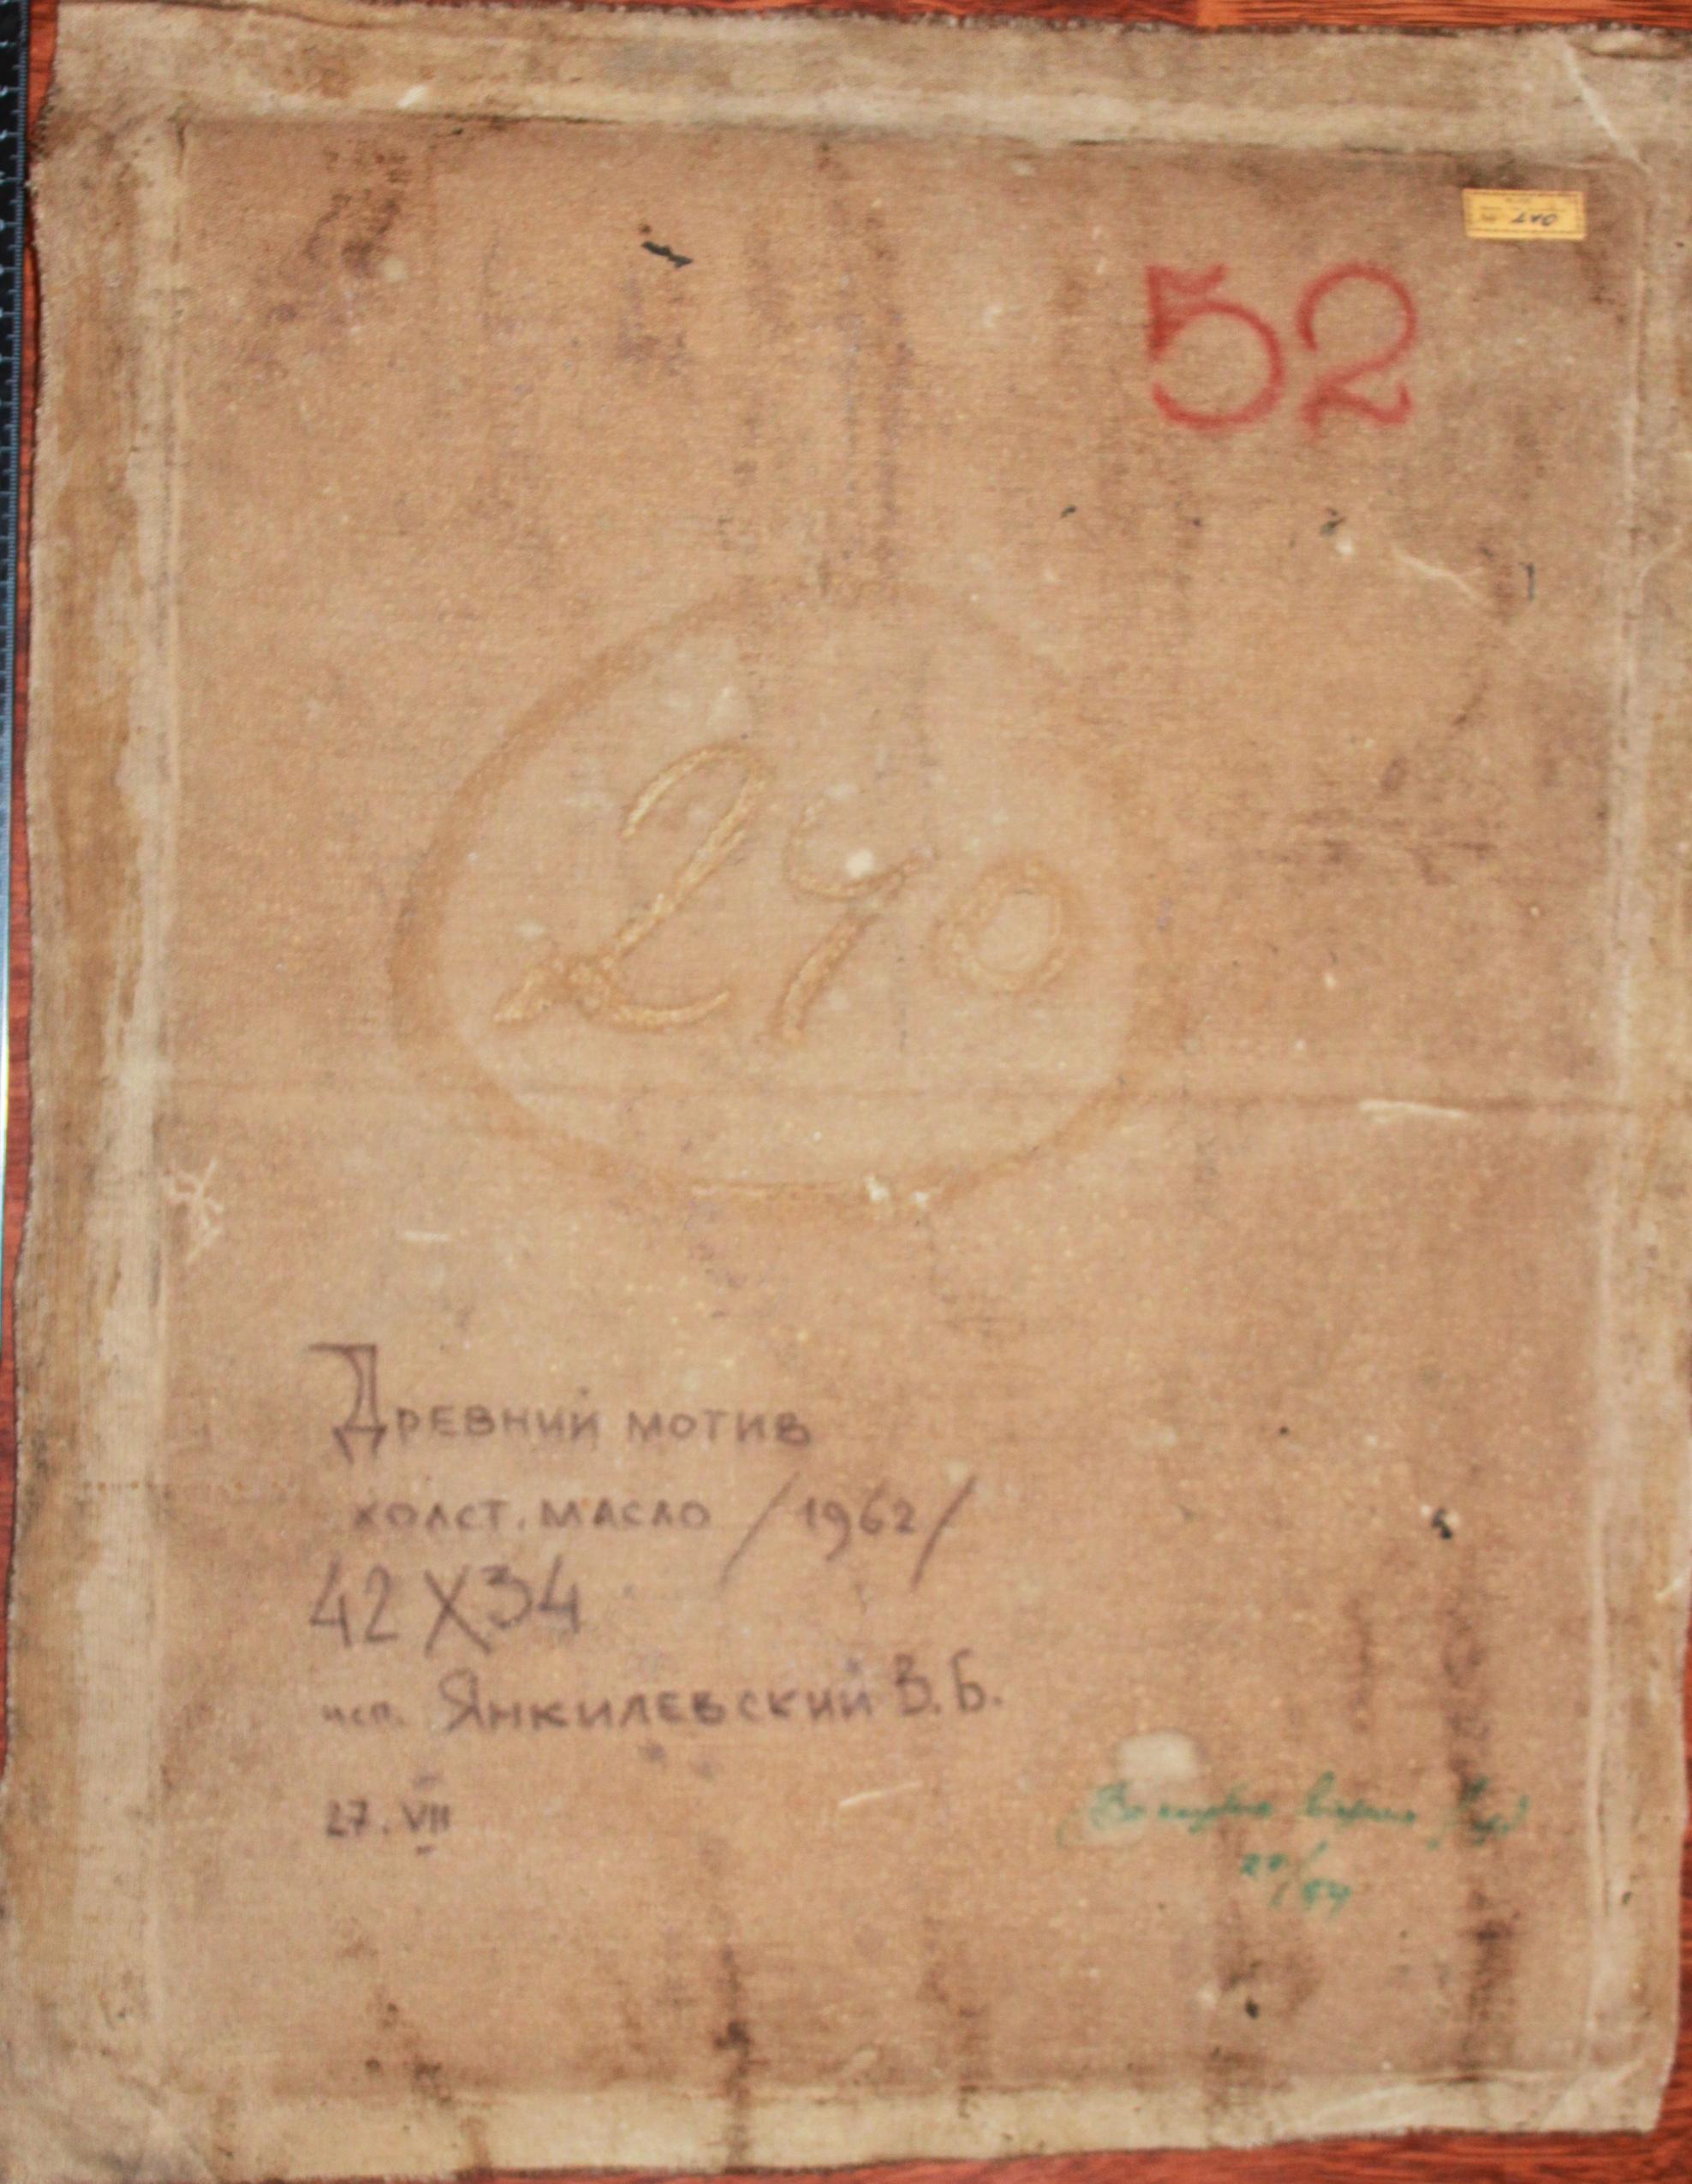 52
290
Древний мотив
холст. масло /1962/
42X34
исп. Янкилевский В.Б.
27.VII